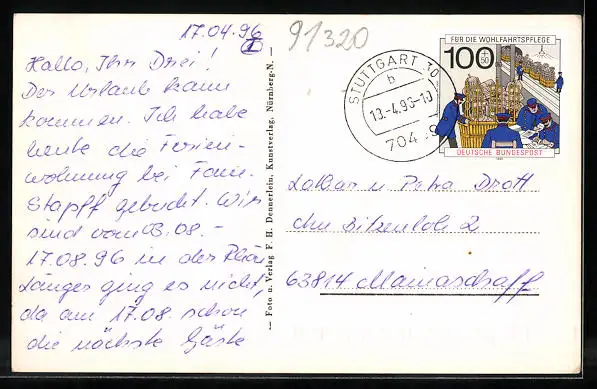 17.04.96
91320
Hallo, Ihr Drei!
Der Urlaub kann
kommen. Ich habe
heute die Ferien-
wohnung bei Fam.
Stapff gebucht. Wir
sind vom 03.08. -
17.08.96 in der Rhön
Länger ging es nicht,
da am 17.08. schon
die nächste Gäste
— Foto u. Verlag F. H. Dennerlein, Kunstverlag, Nürnberg-N. —
FÜR DIE WOHLFAHRTSPFLEGE
100+50
DEUTSCHE BUNDESPOST
STUTTGART 10
b
18.-4.96-10
704
Lothar u Petra Drott
Am Sitzenloh 2
63814 Mainaschaff